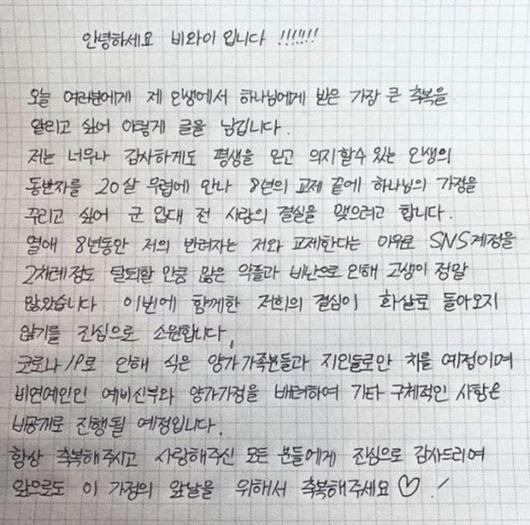 안녕하세요 비와이 입니다 !!!!!!!
오늘 여러분에게 제 인생에서 하나님에게 받은 가장 큰 축복을
알리고 싶어 이렇게 글을 남깁니다.
저는 너무나 감사하게도 평생을 믿고 의지할수 있는 인생의
동반자를 20살 무렵에 만나 8년의 교제 끝에 하나님의 가정을
꾸리고 싶어 군 입대 전 사랑의 결실을 맺으려고 합니다.
열애 8년동안 저의 반려자는 저와 교제한다는 이유로 SNS계정을
2차례정도 탈퇴할 만큼 많은 악플과 비난으로 인해 고생이 정말
많았습니다 이번에 함께한 저희의 결심이 화살로 돌아오지
않기를 진심으로 소원합니다.
코로나19로 인해 식은 양가가족분들과 지인들로만 치를 예정이며
비연예인인 예비신부와 양가가정을 배려하여 기타 구체적인 사항은
비공개로 진행될 예정입니다.
항상 축복해주시고 사랑해주신 모든 분들에게 진심으로 감사드리며
앞으로도 이 가정의 앞날을 위해서 축복해주세요 ♡ !